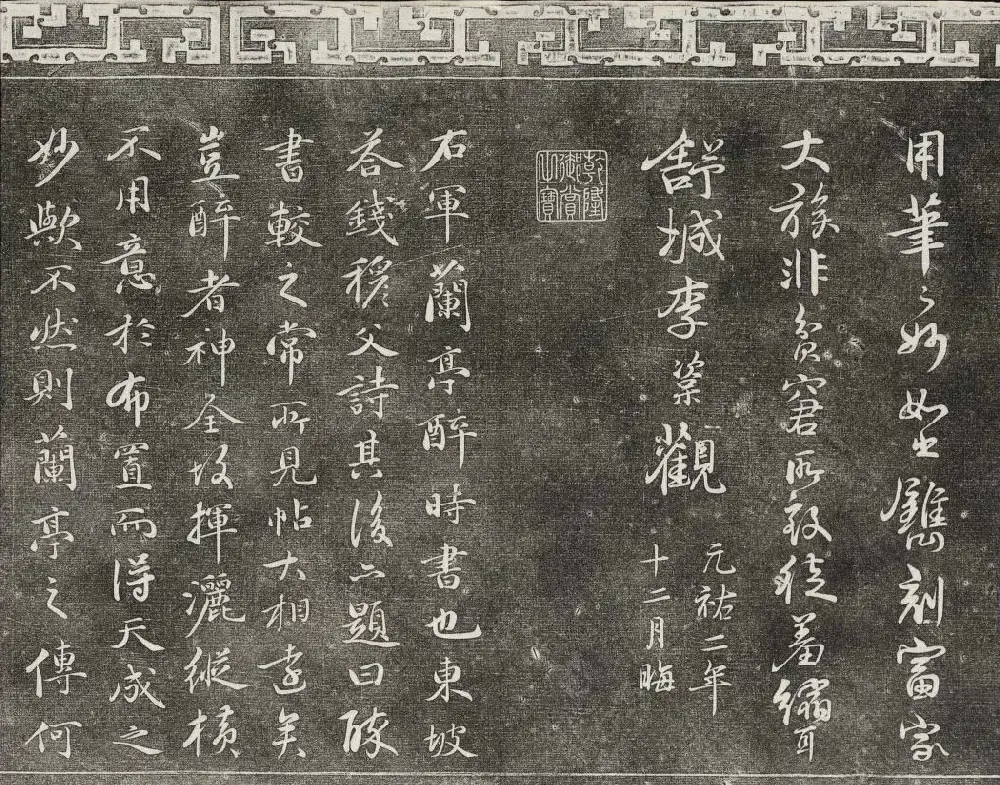 用筆之妙如鐫刻富家
大族非貧窘所敢徒羞縮耳
舒城李楶觀
元祐二年
十二月晦
乾隆御賞之寶
右軍蘭亭醉時書也東坡
荅錢穆父詩其後亦題曰醉
書較之常所見帖大相遠矣
豈醉者神全故揮灑縱橫
不用意於布置而得天成之
妙歟不然則蘭亭之傳何